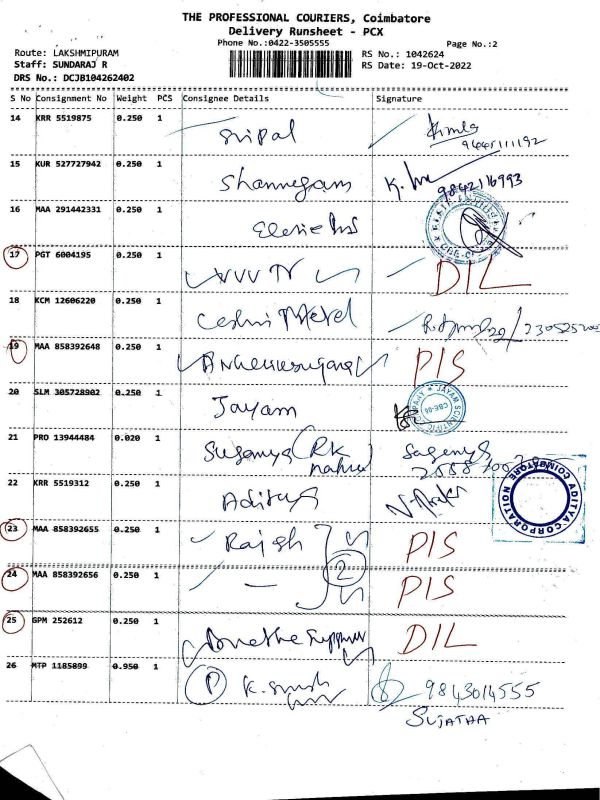 THE PROFESSIONAL COURIERS, Coimbatore
Delivery Runsheet - PCX
Phone No.:0422-3505555
Page No.:2
Route: LAKSHMIPURAM
Staff: SUNDARAJ R
DRS No.: DCJB104262402
RS No.: 1042624
RS Date: 19-Oct-2022
S No Consignment No Weight PCS Consignee Details Signature
14 KRR 5519875 0.250 1 Sripal
9645111192
15 KUR 527727942 0.250 1 Shanmugam
9842116993
16 MAA 291442331 0.250 1
17 PGT 6004195 0.250 1 DIL
18 KCM 12606220 0.250 1
19 MAA 858392648 0.250 1 PIS
20 SLM 305728902 0.250 1 Jayam
JAYAM SCIENTIFIC
21 PRO 13944484 0.020 1 Suganya (RK
22 KRR 5519312 0.250 1 Aditya
ADITYA CORPORATION
COIMBATORE
23 MAA 858392655 0.250 1 Rajesh PIS
2
24 MAA 858392656 0.250 1 — PIS
25 GPM 252612 0.250 1 DIL
26 MTP 1185899 0.950 1 P K. 9843014555
SUJATHA